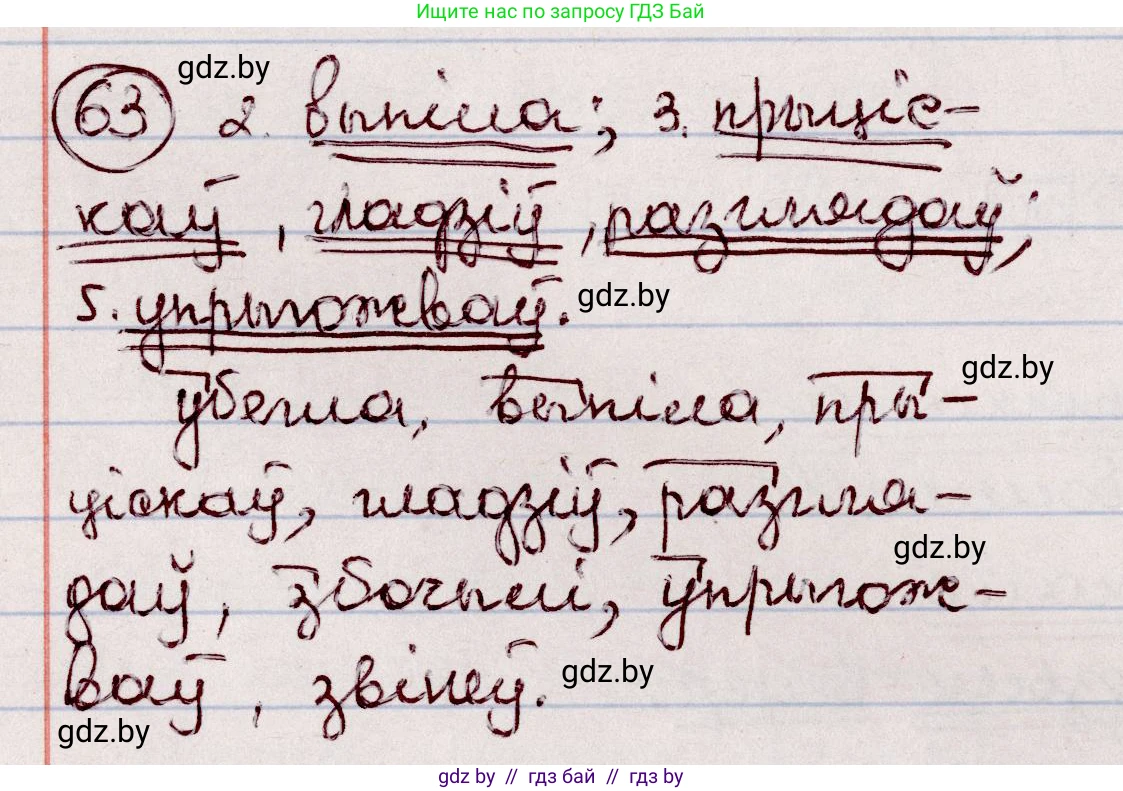 Ищите нас по запросу ГДЗ Бай
gdz.by
63 2. выпіла; 3. прыціс-
каў, гладзіў, разглядаў;
5. упрыгожваў. gdz.by
gdz.by
убегла, выпіла, пры-
ціскаў, гладзіў, разгля-
gdz.by
даў, збочылі, упрыгож-
ваў, звінеў. gdz.by
gdz.by
gdz by // гдз бай // гдз by